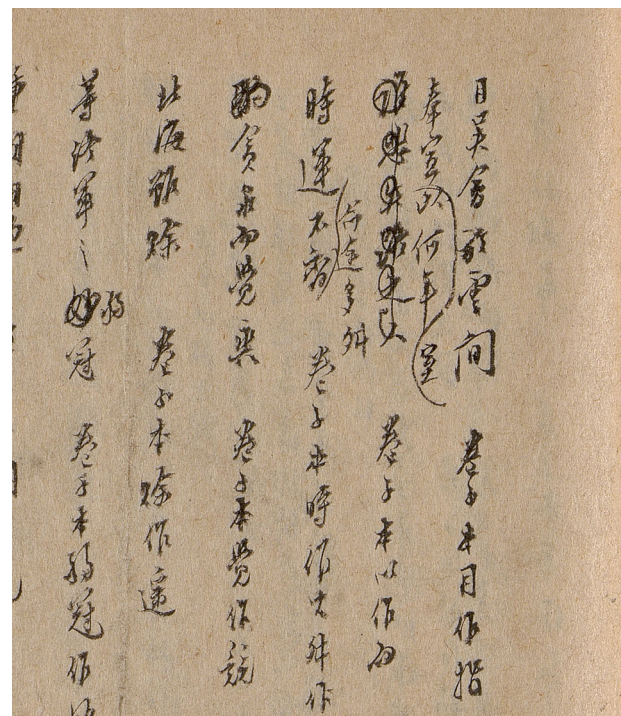 目吳會於雲間　卷子本目作指
奉宣室以何年
卷子本以作而
命途多舛
時運不齊　卷子本時作大舛作
酌貪泉而覺爽　卷子本覺作競
北海雖賒　卷子本賒作遙
等終軍之弱冠　卷子本弱冠作